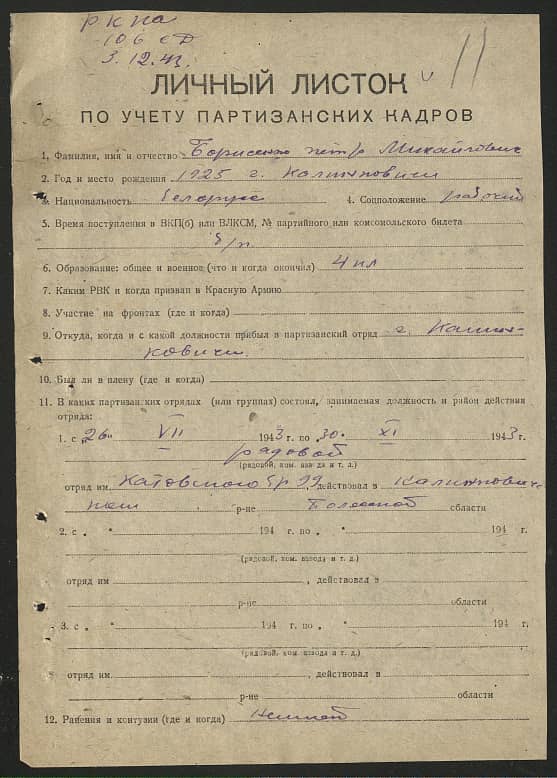 РКка
106 сд
3.12.43
11
ЛИЧНЫЙ ЛИСТОК
ПО УЧЕТУ ПАРТИЗАНСКИХ КАДРОВ
1. Фамилия, имя и отчество Борисенко Петр Михайлович
2. Год и место рождения 1925 г. Калинковичи
3. Национальность белорус 4. Соцположение рабочий
5. Время поступления в ВКП(б) или ВЛКСМ, № партийного или комсомольского билета
б/п.
6. Образование: общее и военное (что и когда окончил) 4 кл
7. Каким РВК и когда призван в Красную Армию
8. Участие на фронтах (где и когда)
9. Откуда, когда и с какой должности прибыл в партизанский отряд г. Калин-
ковичи.
10. Был ли в плену (где и когда)
11. В каких партизанских отрядах (или группах) состоял, занимаемая должность и район действия
отряда:
1. с „26" VII 1943 г. по „30" XI 1943 г.
рядовой
(рядовой, ком. взвода и т. д.)
отряд им. Котовского бр 99, действовал в Калинкович-
ком р-не Полесской области
2. с „ " 194 г. по „ " 194 г.
(рядовой, ком. взвода и т. д.)
отряд им , действовал в
р-не области
3. с „ " 194 г. по „ " 194 г.
(рядовой, ком. взвода и т. д.)
отряд им. , действовал в
р-не области
12. Ранения и контузии (где и когда)